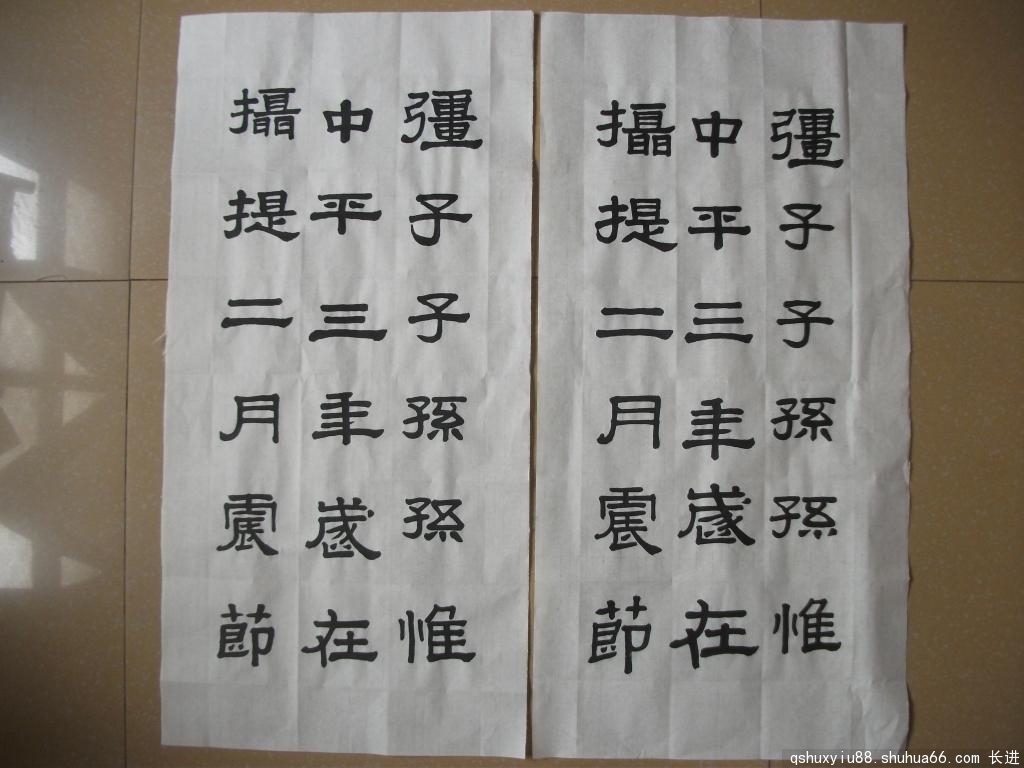 彊子子孫孫惟
中平三年歲在
攝提二月震節
彊子子孫孫惟
中平三年歲在
攝提二月震節
qshuxyiu88.shuhua66.com 长进